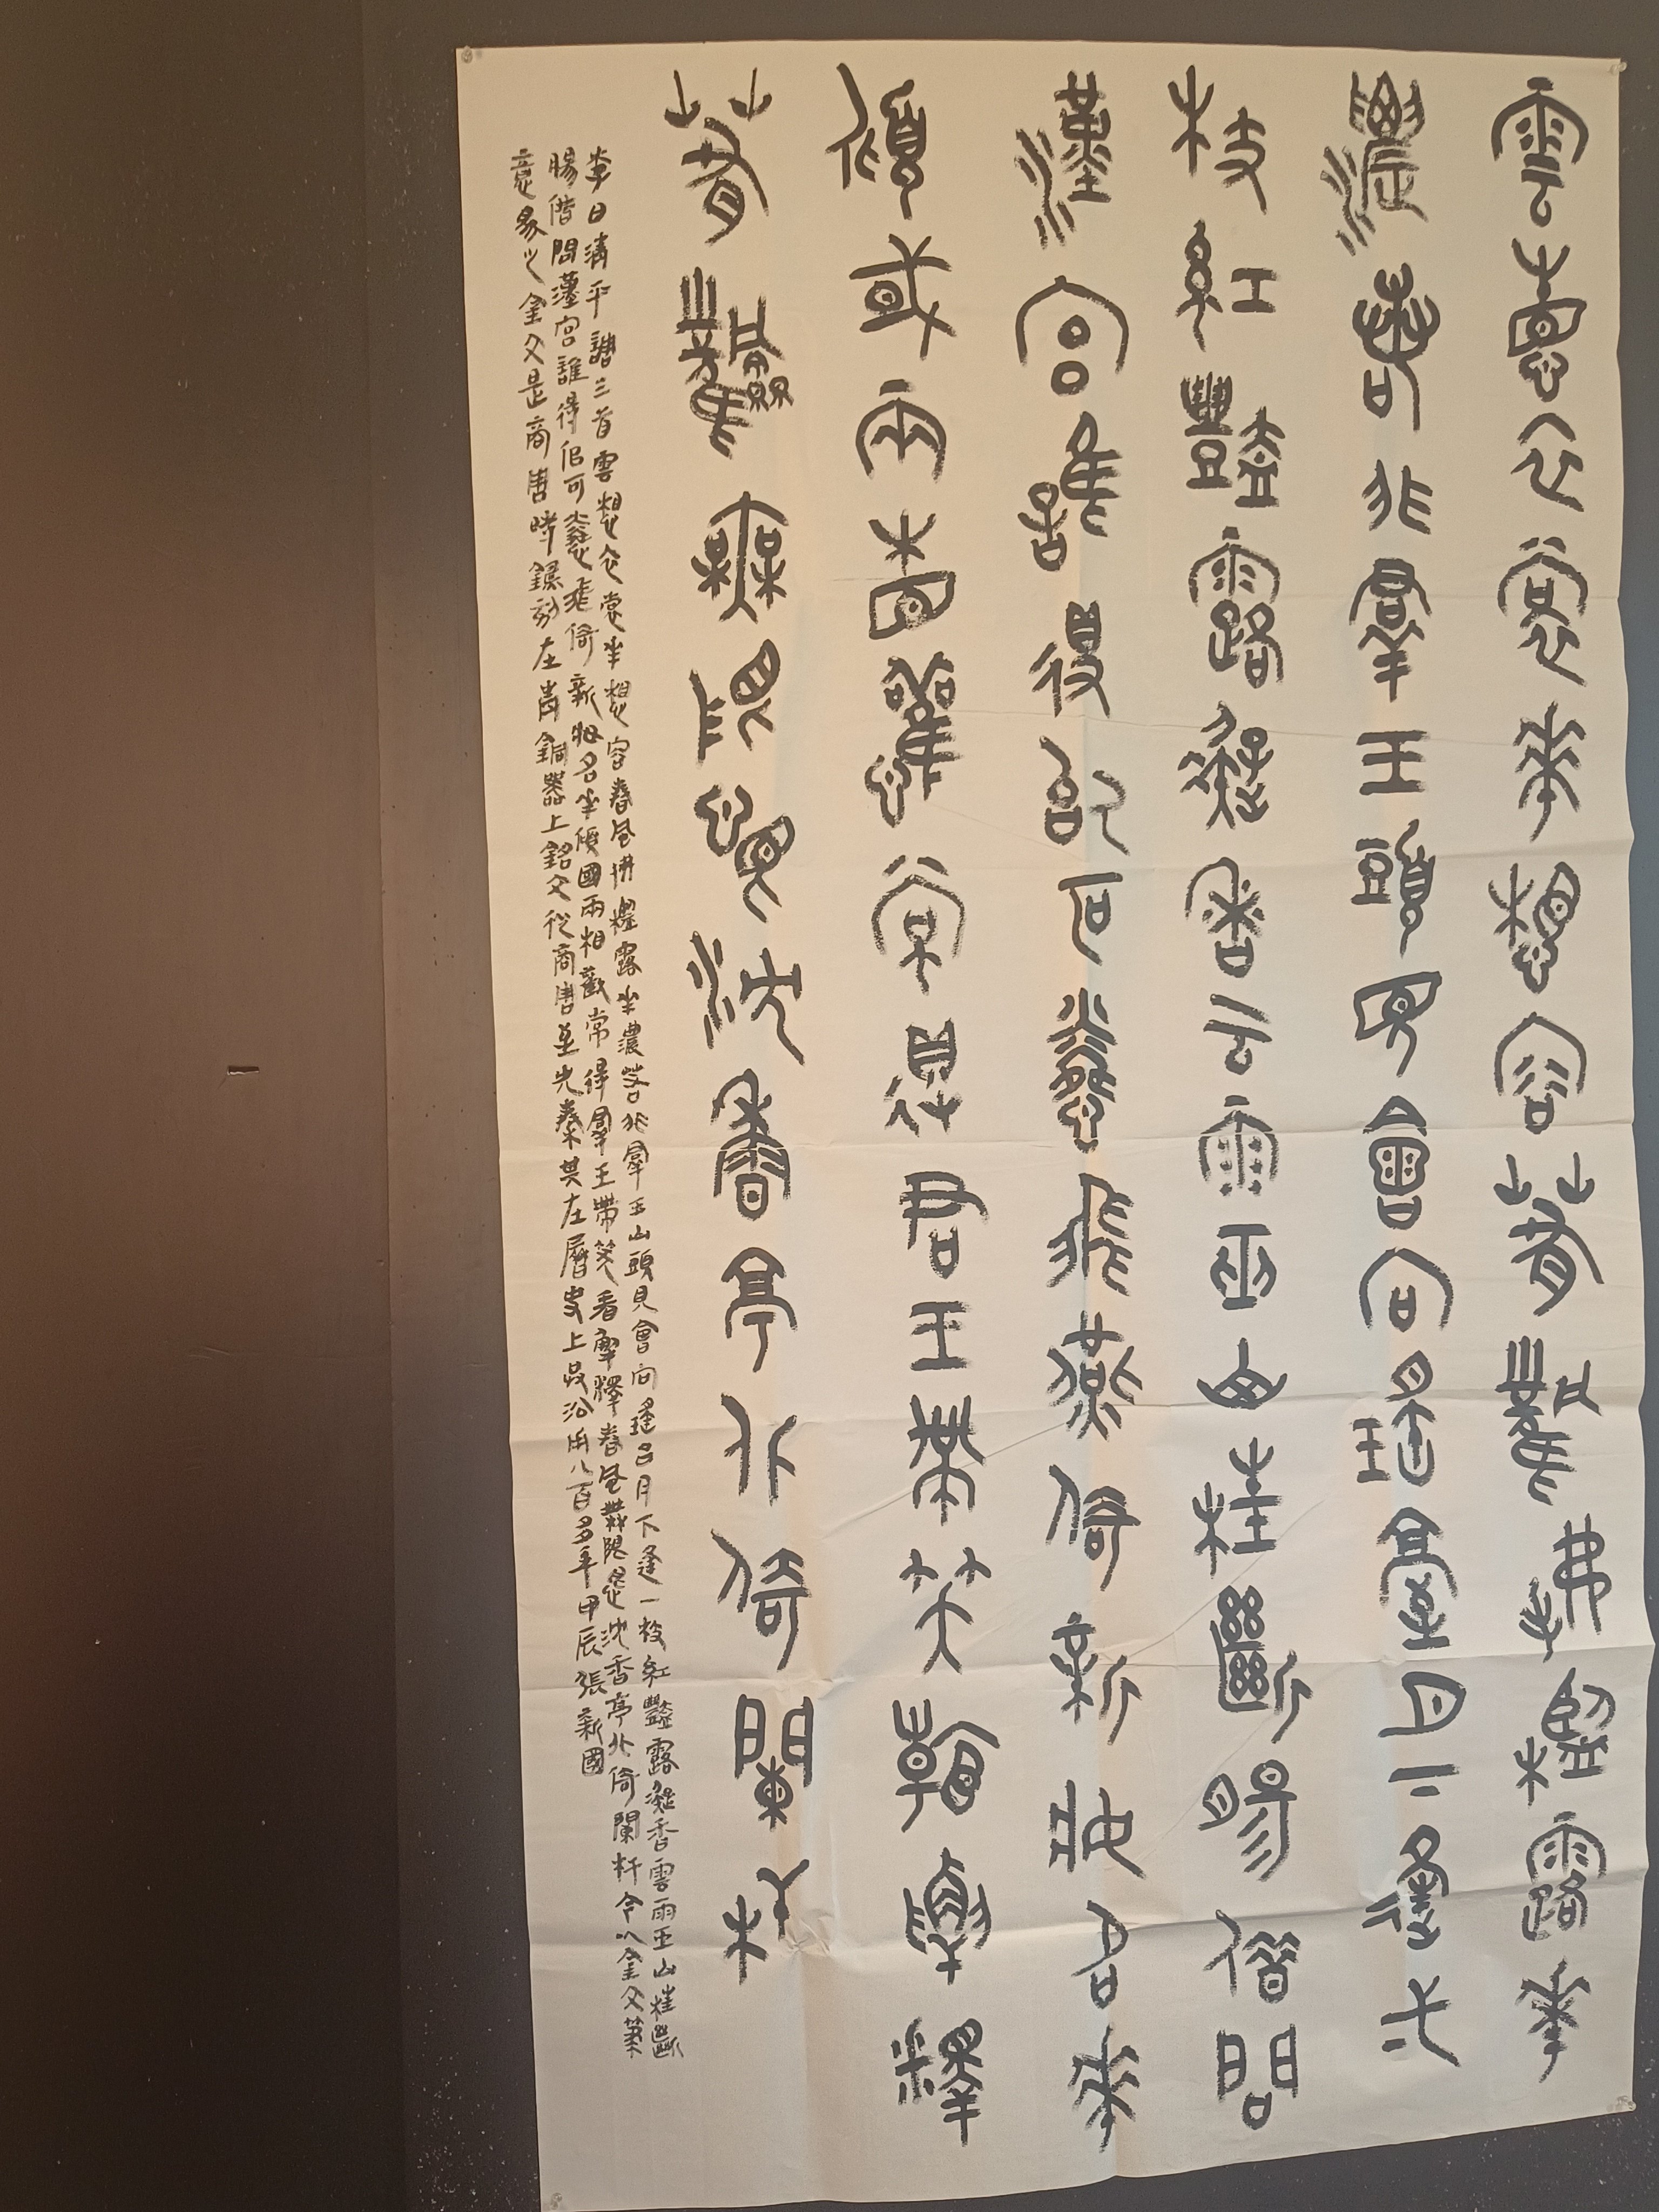 雲想衣裳華想容春風拂檻露華
濃若非羣玉頭見會向瑤臺月下逢弌
枝紅豔露凝香雲雨巫山桂斷腸借問
漢宮誰得佀可憐飛燕倚新妝名華
傾國兩相歡常得君王帶笑看解釋
春風無限恨沈香亭北倚闌杆
李白清平調三首雲想衣裳華想容春風拂檻露華濃若非羣玉山頭見會向瑤台月下逢一枝紅豔露凝香雲雨巫山桂斷
腸借問漢宮誰得佀可憐飛倚新妝名華傾國兩相歡常得羣王帶笑看解釋春風無限恨沈香亭北倚闌杆今以金文筆
意象之金文是商周時鐫刻在青銅器上銘文從商周至先秦其在歷史上共沿用八百多年甲辰張新國